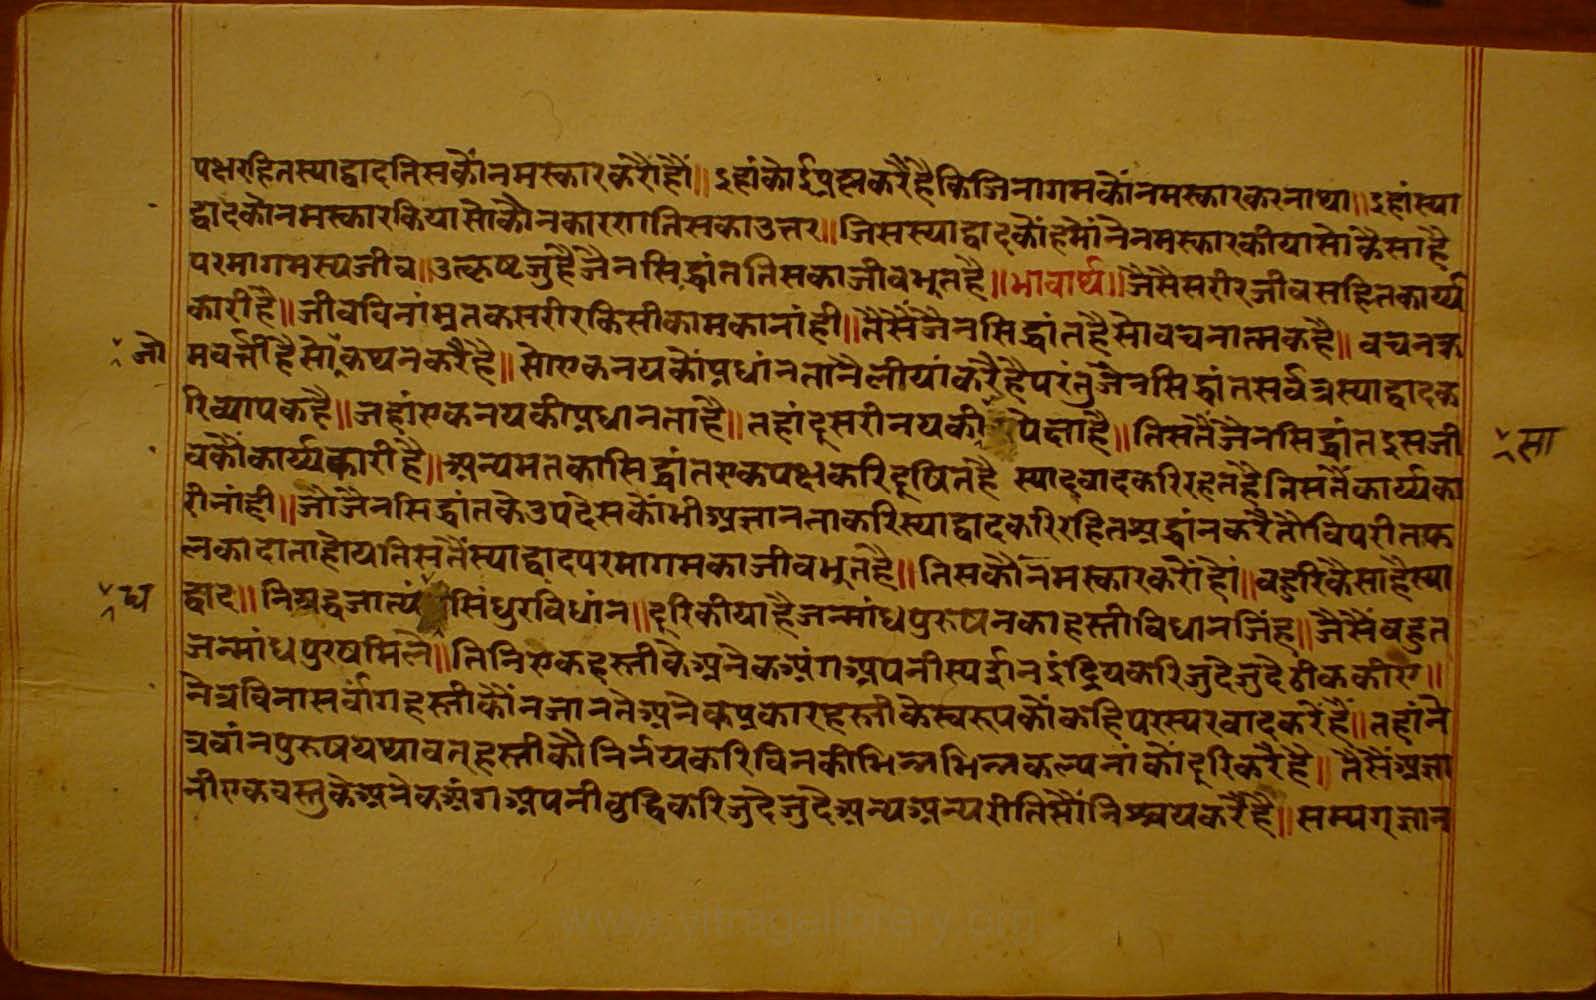 पक्षरहितस्याद्वादतिसकौंनमस्कारकरौंहौं॥इहांकोईप्रश्नकरैहैकिजिनागमकौंनमस्कारकरनाथा॥इहांस्या
द्वादकौंनमस्कारकियासोकौनकारणतिसकाउत्तर॥जिसस्याद्वादकौंहमौंनैनमस्कारकीयासोकैसाहै
परमागमस्यजीव॥उत्कृष्टजुहैजैनसिद्धांततिसकाजीवभूतहै॥भावार्थ॥जैसैसरीरजीवसहितकार्य्य
कारीहै॥जीवविनांमृतकसरीरकिसीकामकानांही॥तैसैंजैनसिद्धांतहैसोवचनात्मकहै॥वचनक्र
जो
मवर्त्तीहैसोकथनकरैहै॥सोएकनयकौंप्रधांनतानैलीयांकरैहैपरंतुजैनसिद्धांतसर्वत्रस्याद्वादक
रिव्यापकहै॥जहांएकनयकीप्रधानताहै॥तहांदूसरीनयकी पेक्षाहै॥तिसतैंजैनसिद्धांतइसजी
सा
वकौंकार्य्यकारीहै॥अन्यमतकासिद्धांतएकपक्षकरिदूषितहै स्यादवादकरिरहतहैतिसतैंकार्य्यका
रीनांही॥जोजैनसिद्धांतकेउपदेसकौंभीअज्ञानताकरिस्याद्वादकरिरहितश्रद्धांनकरैतौविपरीतफ
लकादाताहोयतिसतैंस्याद्वादपरमागमकाजीवभूतहै॥तिसकौंनमस्कारकरौंहौं॥बहुरिकैसाहैस्या
घ
द्वाद॥निषिद्धजात्यं सिंधुरविधांन॥दूरिकीयाहैजन्मांधपुरूषनकाहस्तीविधानजिंह॥जैसैंबहुत
जन्मांधपुरषमिलै॥तिनिएकहस्तीकेअनेकअंगअपनीस्पर्शनइंद्रियकरिजुदेजुदेठीककीए॥
नेत्रविनासर्वांगहस्तीकौंनजानतेअनेकप्रकारहस्तीकेस्वरूपकौंकहिपरस्परवादकरैंहैं॥तहांने
त्रवांनपुरूषयथावत्हस्तीकौनिर्नयकरिविनकीभिन्नभिन्नकल्पनांकौंदूरिकरैहै॥तैसैंअज्ञा
नीएकवस्तुकेअनेकअंगअपनीबुद्धिकरिजुदेजुदेअन्यअन्यरीतिसौंनिश्चयकरैहै॥सम्यग्ज्ञान
www.vitragelibrary.org